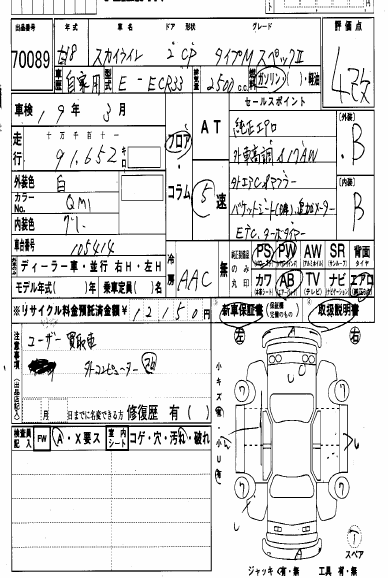 出品番号 年式 車名 ドア 形状 グレード 評価点
70089 H8 スカイライン 2 CP タイプM スペックII 4改
車歴 自家用 型式 E-ECR33 排気量 2500cc ガソリン・軽油
車検 19年 3月
セールスポイント
走行 十万千百十一 91,652 キロ
フロア・コラム
AT
5速
純正エアロ
社外車高調 A17AW
[外装] B
[内装] B
外装色 白
カラーNo. QM1
内装色 グレー
車台番号 105414
ETC.ターボタイマー
冷房 AAC 無
純正装備品のみ○印
PS PW AW SR 背面タイヤ
カワ AB TV ナビ エアロ
ディーラー車・並行 右H・左H
モデル年式( )年 乗車定員( )名
※リサイクル料金預託済金額¥ 12150円
新車保証書 取扱説明書
注意事項(出品店記入)
ユーザー買取車
社外コンピューター
月 日までに名変できる方 修復歴 有( )
検査員記入 FW A・X要ス 室内シート コゲ・穴・汚れ・破れ
左 右
小キズ(有)・小U(有)
A
スペア
ジャッキ(有・無 工具 有・無